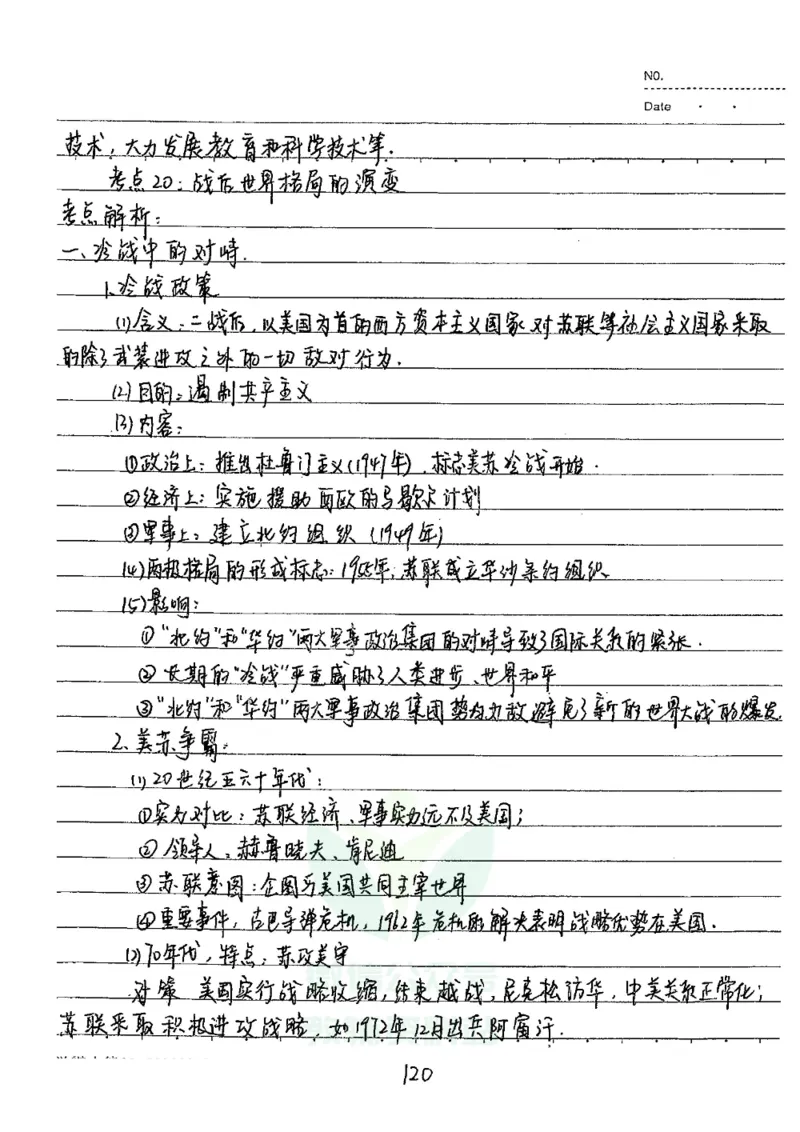 NO.
Date
技术，大力发展教育和科学技术等.
考点20：战后世界格局的演变
考点解析：
一、冷战中的对峙.
1.冷战政策
(1)含义：二战后，以美国为首的西方资本主义国家对苏联等社会主义国家采取
的除了武装进攻之外的一切敌对行为.
(2)目的：遏制共产主义
(3)内容：
①政治上：推出杜鲁门主义(1947年)，标志美苏冷战开始.
②经济上：实施援助西欧的马歇尔计划
③军事上：建立北约组织(1949年)
(4)两极格局的形成标志：1955年，苏联成立华沙条约组织
(5)影响：
①"北约"和"华约"两大军事政治集团的对峙导致了国际关系的紧张.
②长期的"冷战"严重威胁了人类进步、世界和平
③"北约"和"华约"两大军事政治集团势均力敌避免了新的世界大战的爆发.
2.美苏争霸：
(1)20世纪五六十年代：
①实力对比：苏联经济、军事实力远不及美国；
②领导人：赫鲁晓夫、肯尼迪
③苏联意图：企图与美国共同主宰世界
④重要事件：古巴导弹危机，1962年危机的解决表明战略优势在美国.
(2)70年代，特点：苏攻美守
对策 美国实行战略收缩，结束越战，尼克松访华，中美关系正常化；
苏联采取积极进攻战略，如1972年12月出兵阿富汗.
120